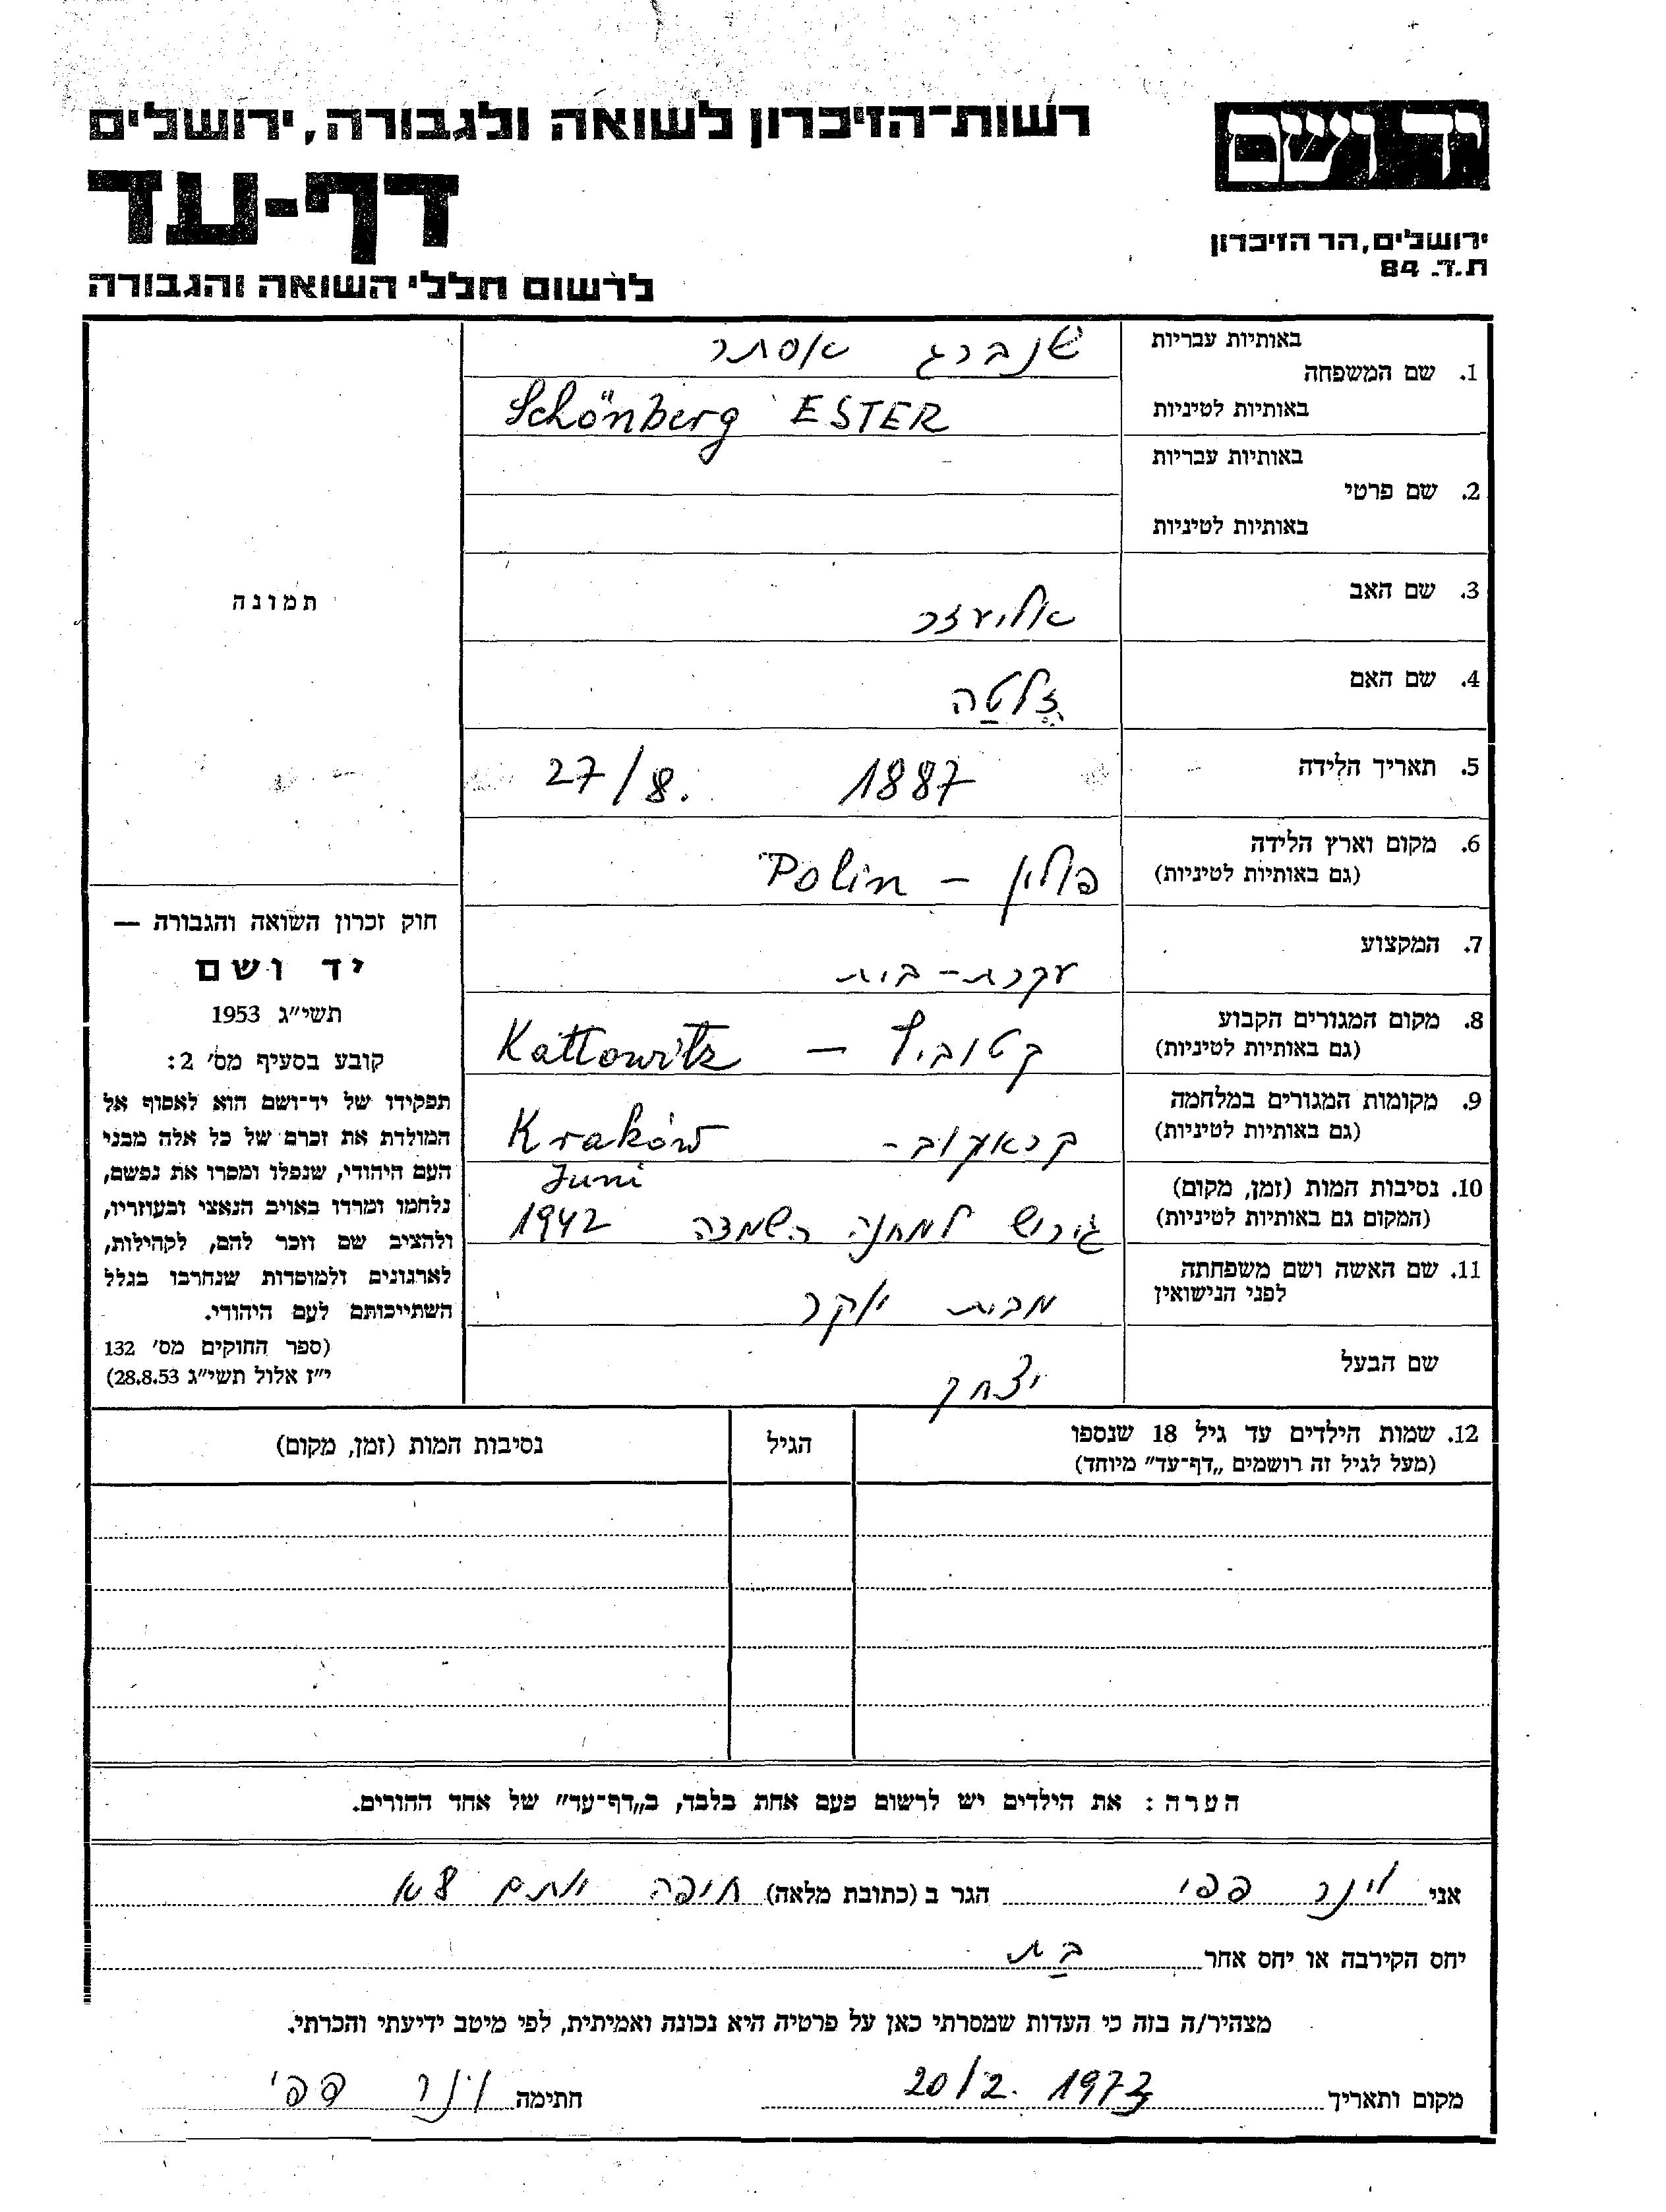 יד ושם
רשות־הזיכרון לשואה ולגבורה, ירושלים
דף-עד
ירושלים, הר הזיכרון
ת.ד. 84
לרשום חללי השואה והגבורה
באותיות עבריות שנברג אסתר
1. שם המשפחה
באותיות לטיניות Schönberg ESTER
באותיות עבריות
2. שם פרטי
באותיות לטיניות
3. שם האב אליעזר
4. שם האם זלטה
5. תאריך הלידה 27/8. 1887
6. מקום וארץ הלידה
(גם באותיות לטיניות) פולין – Polin
7. המקצוע עקרת-בית
8. מקום המגורים הקבוע
(גם באותיות לטיניות) קטוביץ – Kattowitz
9. מקומות המגורים במלחמה
(גם באותיות לטיניות) קראקוב- Kraków
10. נסיבות המות (זמן, מקום) Juni
(המקום גם באותיות לטיניות) גירוש למחנה השמדה 1942
11. שם האשה ושם משפחתה
לפני הנישואין מבית
שם הבעל יצחק
תמונה
חוק זכרון השואה והגבורה —
יד ושם
תשי"ג 1953
קובע בסעיף מס' 2:
תפקידו של יד־ושם הוא לאסוף אל
המולדת את זכרם של כל אלה מבני
העם היהודי, שנפלו ומסרו את נפשם,
נלחמו ומרדו באויב הנאצי ובעוזריו,
ולהציב שם וזכר להם, לקהילות,
לארגונים ולמוסדות שנחרבו בגלל
השתייכותם לעם היהודי.
(ספר החוקים מס' 132
י"ז אלול תשי"ג 28.8.53)
12. שמות הילדים עד גיל 18 שנספו הגיל נסיבות המות (זמן, מקום)
(מעל לגיל זה רושמים „דף־עד" מיוחד)
הערה: את הילדים יש לרשום פעם אחת בלבד, ב„דף־עד" של אחד ההורים.
אני וינר פפי הגר ב (כתובת מלאה) חיפה
יחס הקירבה או יחס אחר בת
מצהיר/ה בזה כי העדות שמסרתי כאן על פרטיה היא נכונה ואמיתית, לפי מיטב ידיעתי והכרתי.
מקום ותאריך 20/2. 1973 חתימה וינר פפי